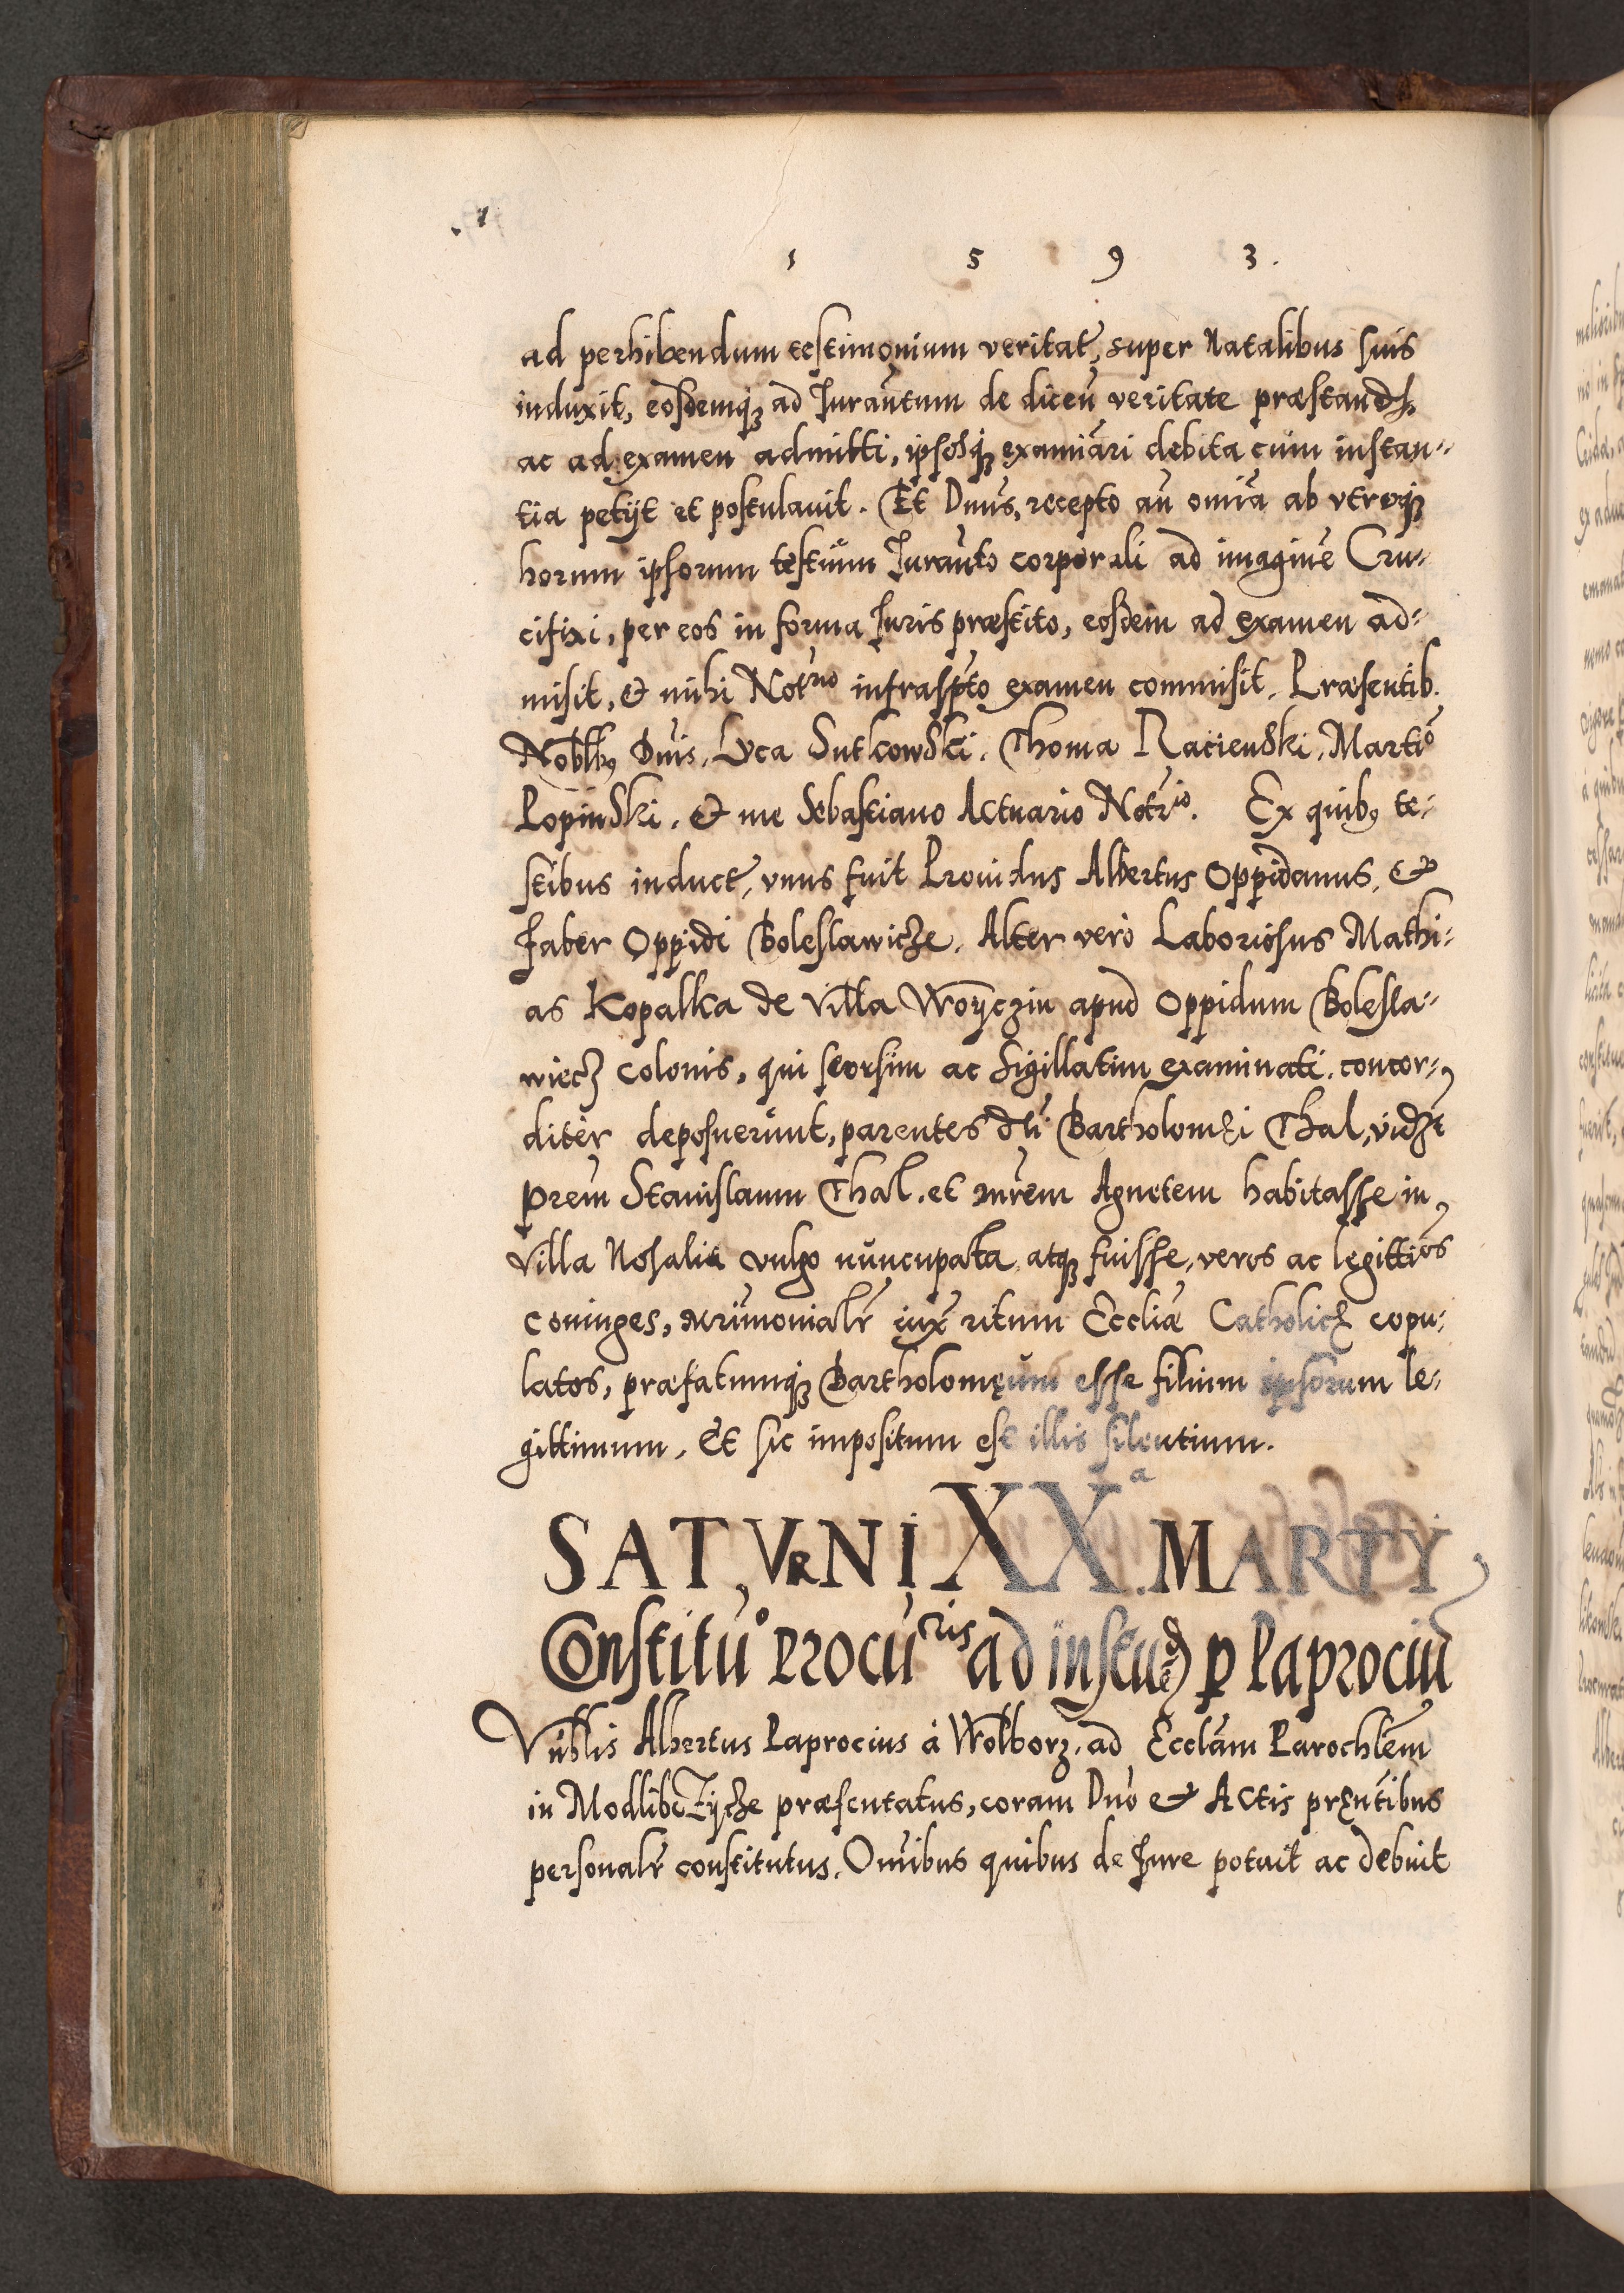 1 5 9 3.
ad perhibendum testimonium veritat, super Natalibus suis
induxit, eosdemq₃ ad Juramtum de dicen veritate præstand
ac ad examen admitti, ipsosq₃ examiari debita cum instan-
tia petijt et postulauit. Et Dnus, recepto an omia ab vtroq₃
horum ipsorum testium Juramto corporali ad imagine Cru-
cifixi, per eos in forma Juris præstito, eosdem ad examen ad-
misit, & mihi Notrio infraspto examen commisit. Præsentib.
Nobllb9 Dnis, Lvca Sutkowski. Thoma Racienski. Martio
Lopinski. & me Sebastiano Actuario Notrio. Ex quib9 te-
stibus induct, vnus fuit Prouidus Albertus Oppidanus, &
Faber Oppidi Boleslawicze. Alter vero Laboriosus Mathi-
as Kopalka de Villa Woyczin apud Oppidum Bolesla-
wiecz colonis, qui seorsim ac sigillatim examinati. concor-
diter deposuerunt, parentes dti Bartholomęi Thal, vidzt
prem Stanislaum Thal. et mrem Agnetem habitasse in
Villa Nosalie vulgo nuncupata, atq₃ fuisse, veros ac legittios
coniuges, mrimonialr iuxt ritum Eccliæ Catholicę copu-
latos, præfatumq₃ Bartholomęum esse filium ipsorum le-
gittimum, Et sic impositum est illis silentium.
SATVRNI XXa. MARTY
Constituo Procuris ad instued p Paprociu
Vnblis Albertus Paprocius à Wolborz. ad Ecclam Parochlem
in Modlibczycze præsentatus, coram Dno & Actis pręntibus
personalr constitutus. Omibus quibus de Jure potuit ac debuit